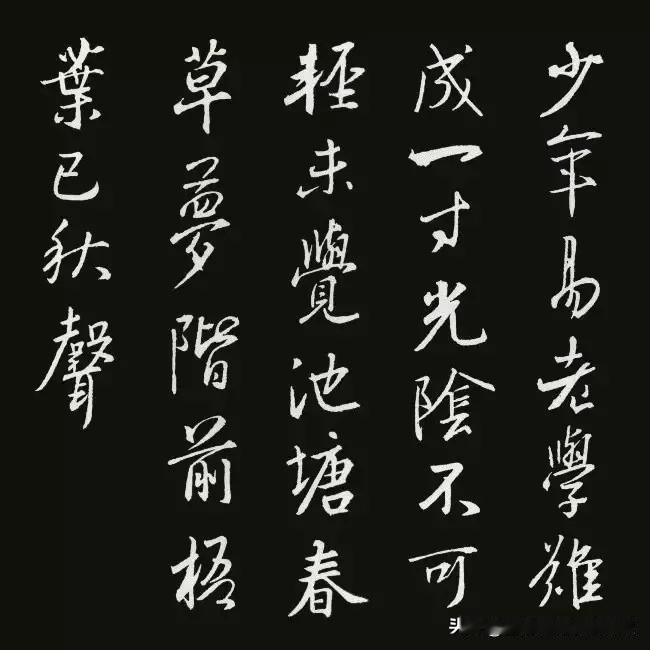 少年易老學難
成一寸光陰不可
輕未覺池塘春
草夢階前梧
葉已秋聲
头